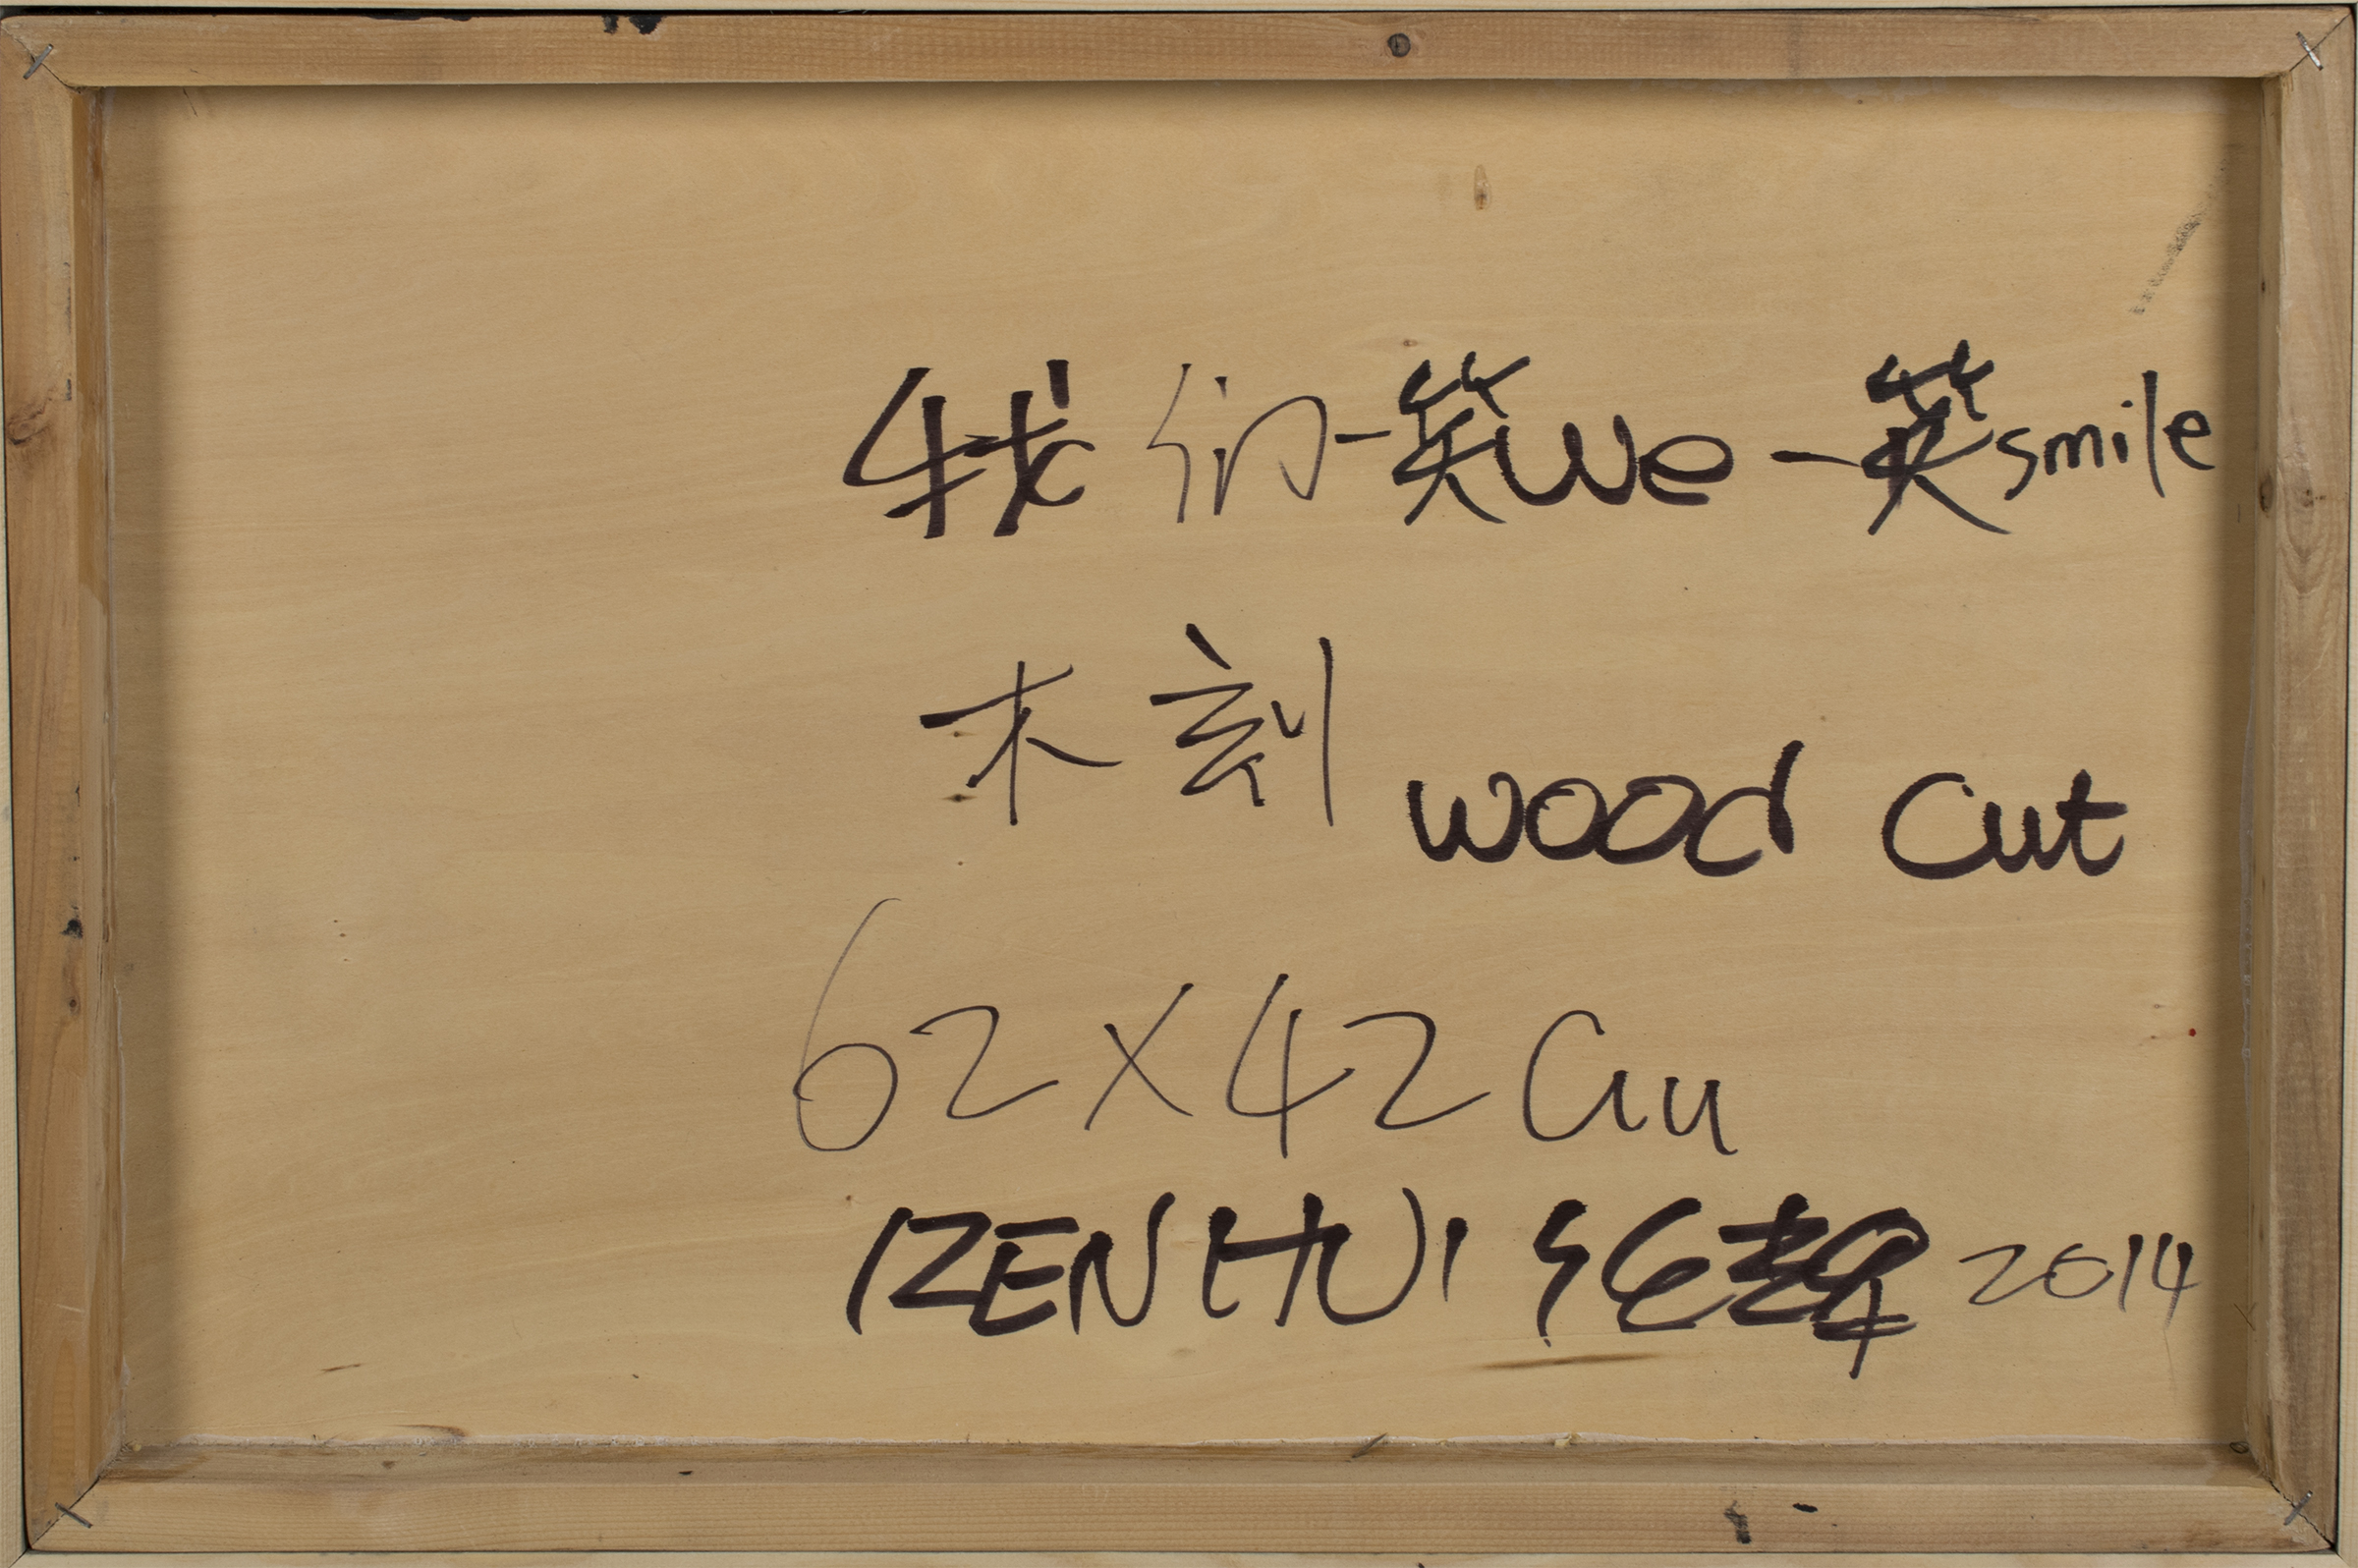 我们-笑We-笑smile
木刻 wood cut
62×42cm
ZENHUI 2014